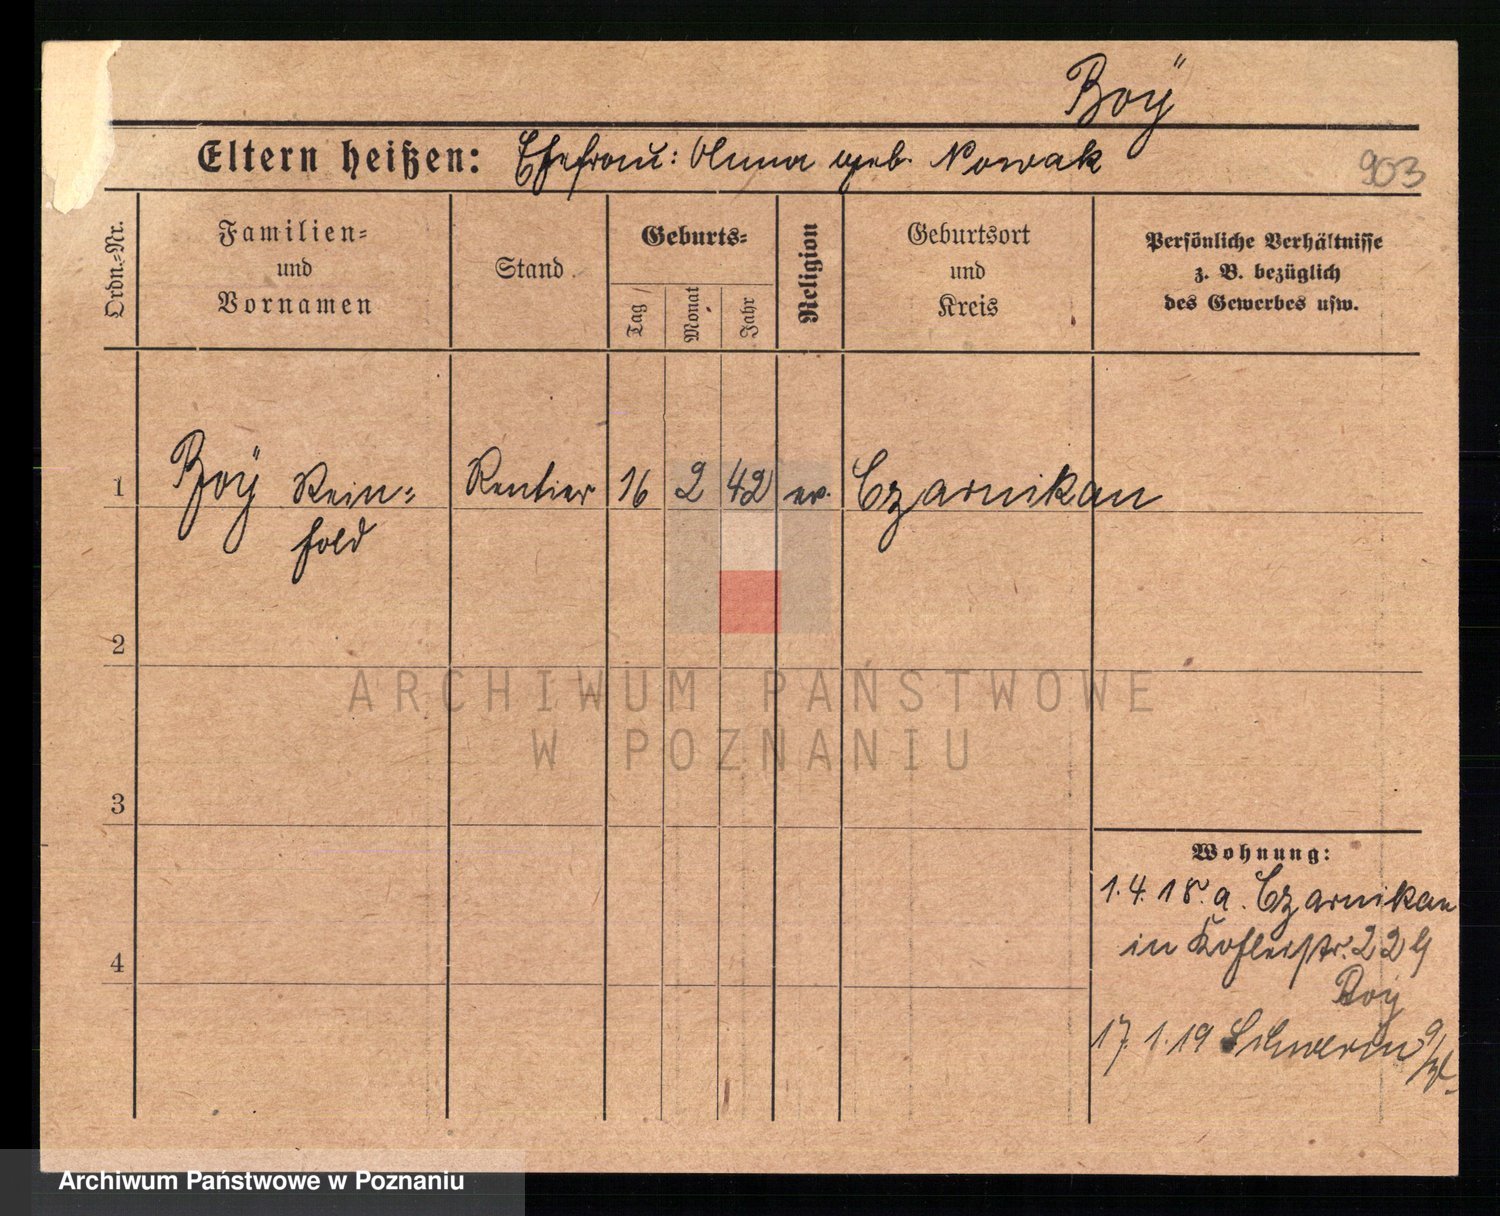 Boÿ
Eltern heißen: Ehefrau: Anna geb. Nowak
903
Ordn.-Nr.
Familien- und Vornamen
Stand
Geburts-
Tag
Monat
Jahr
Religion
Geburtsort und Kreis
Persönliche Verhältnisse z. B. bezüglich des Gewerbes usw.
1 Boÿ Rein- Rentier 16 2 42 ev. Czarnikau
hold
2
3
4
Wohnung:
1.4.18. a. Czarnikau
in 22
Boy
17.1.19 Schwerin a/W.
ARCHIWUM PAŃSTWOWE
W POZNANIU
Archiwum Państwowe w Poznaniu